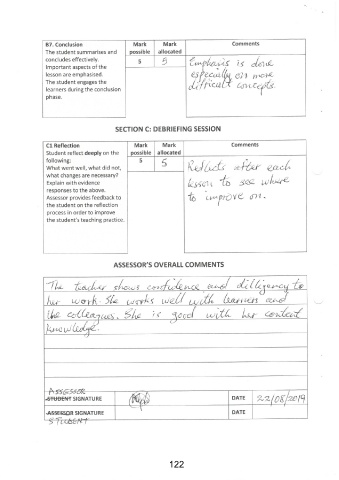 B7. Conclusion Mark Mark Comments
The student summarises and possible allocated
concludes effectively. 5 5 Emphasis is done
Important aspects of the especially on more
lesson are emphasised. difficult concepts.
The student engages the
learners during the conclusion
phase.
SECTION C: DEBRIEFING SESSION
C1 Reflection Mark Mark Comments
Student reflect deeply on the possible allocated
following: 5 5 Reflects after each
What went well, what did not, lesson to see where
what changes are necessary? to improve on.
Explain with evidence
responses to the above.
Assessor provides feedback to
the student on the reflection
process in order to improve
the student's teaching practice.
ASSESSOR'S OVERALL COMMENTS
The teacher shows confidence and dilligency to
her work. She works well with learners and
the colleagues. She is good with her content
knowledge.
ASSESSOR
STUDENT SIGNATURE DATE 22/08/2019
ASSESSOR SIGNATURE DATE
STUDENT
122